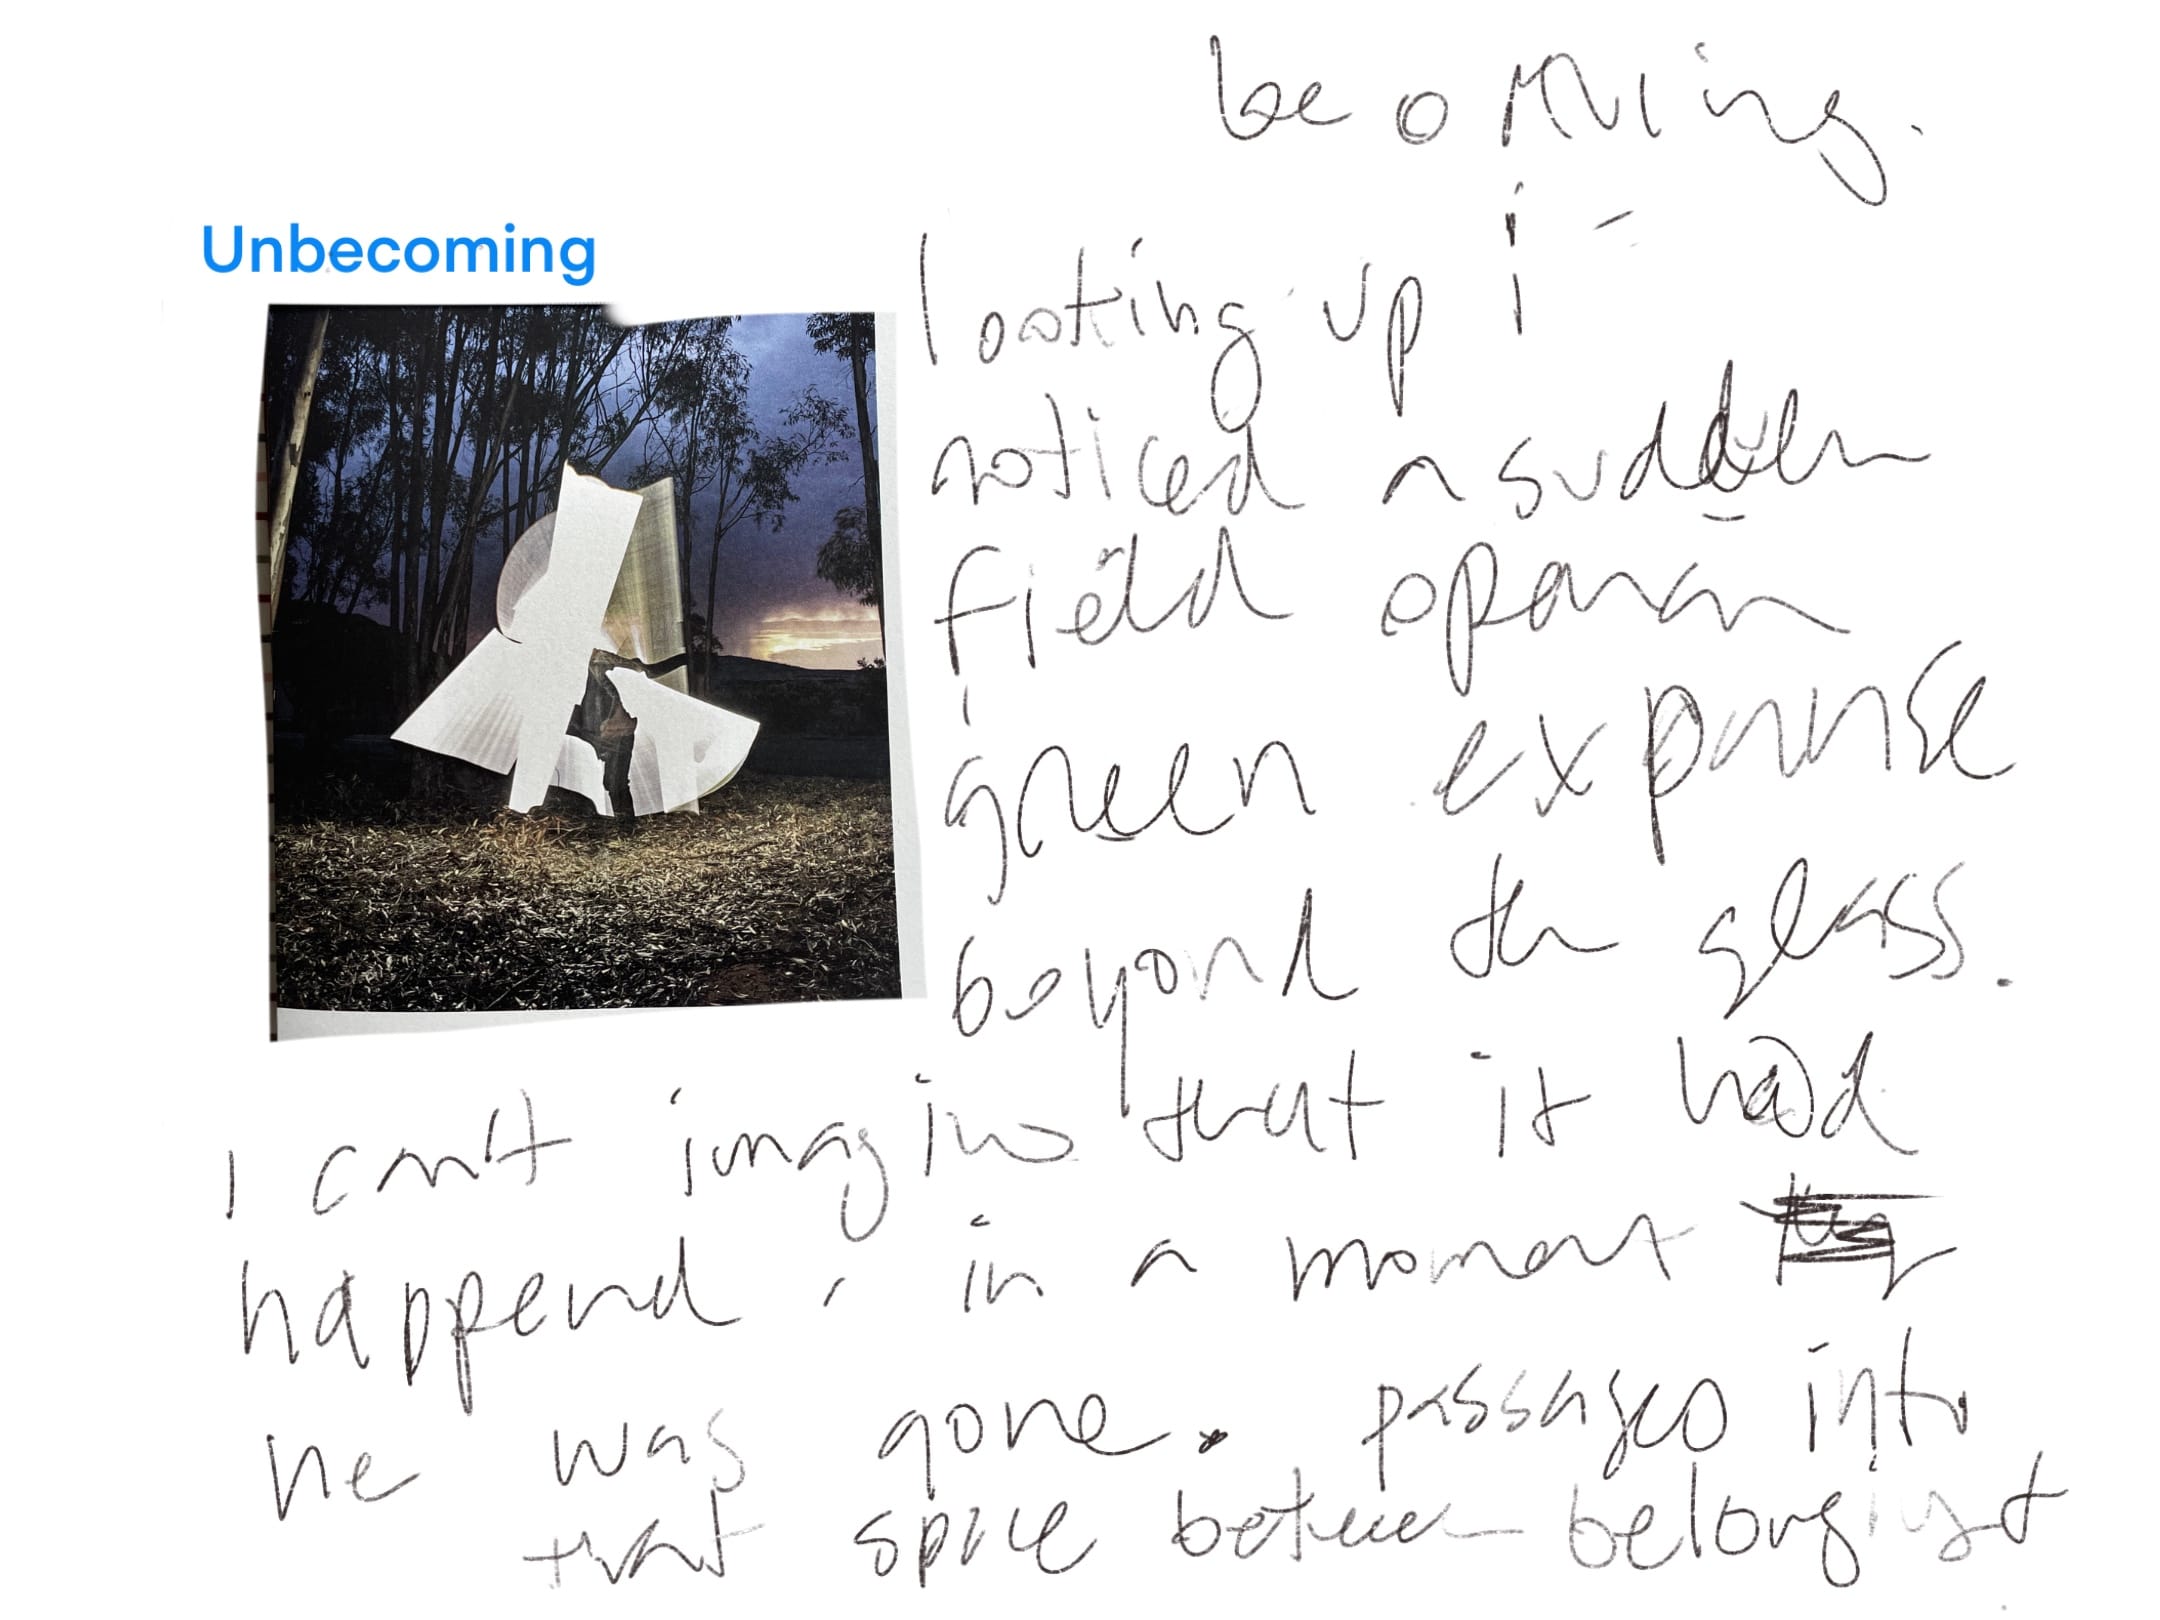 Unbecoming
looking up i
noticed a sudden
field open
green expanse
beyond the glass.
i can't imagine that it had
happend, in a moment
he was gone. passages into
that space between belonging +